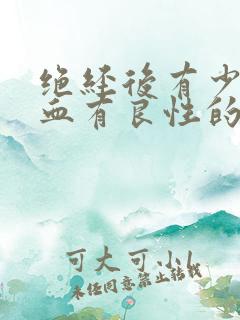 绝经后有少
血有良性的
可大可小
未经同意禁止转载